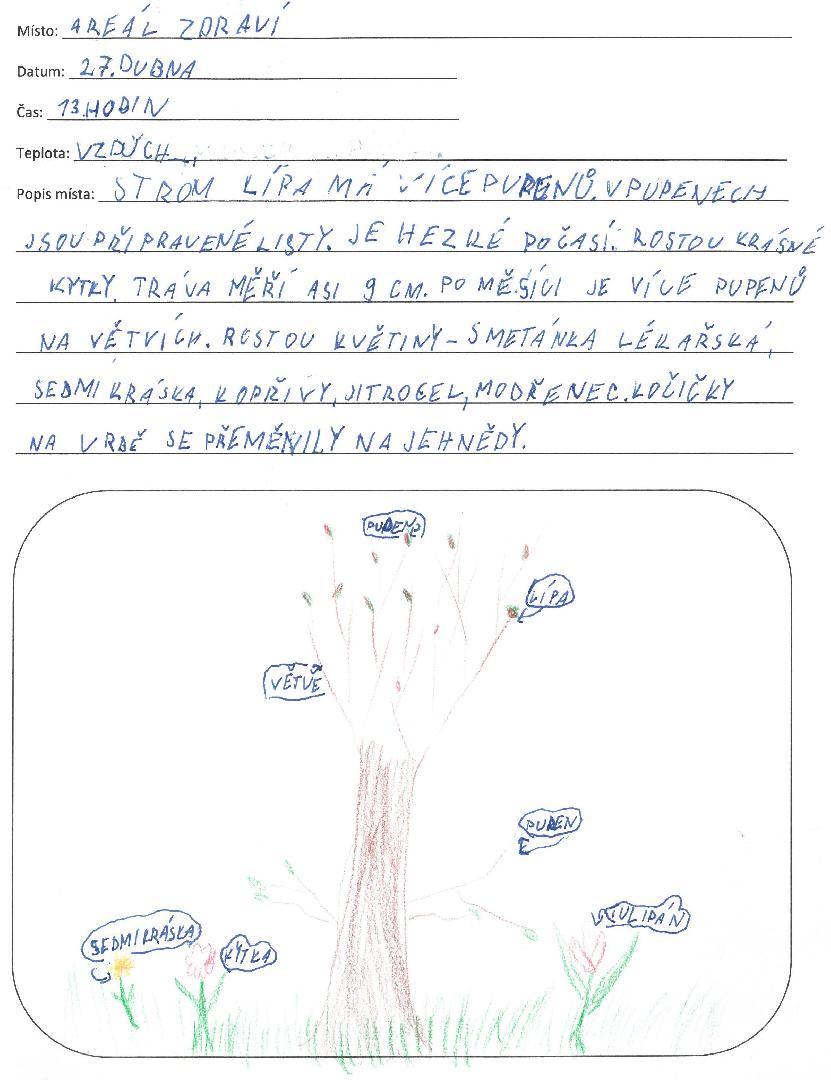 Místo: AREÁL ZDRAVÍ
Datum: 27. DUBNA
Čas: 13. HODIN
Teplota: VZDUCH
Popis místa: STROM LÍPA MÁ VÍCE PUPENŮ. V PUPENECH
JSOU PŘIPRAVENÉ LISTY. JE HEZKÉ POČASÍ. ROSTOU KRÁSNÉ
KYTKY. TRÁVA MĚŘÍ ASI 9 CM. PO MĚSÍCI JE VÍCE PUPENŮ
NA VĚTVÍCH. ROSTOU KVĚTINY - SMETÁNKA LÉKAŘSKÁ,
SEDMIKRÁSKA, KOPŘIVY, JITROCEL, MODŘENEC. KOČIČKY
NA VRBĚ SE PŘEMĚNILY NA JEHNĚDY.
PUPEN
LÍPA
VĚTVĚ
PUPEN
TULIPÁN
SEDMIKRÁSKA
KYTKA